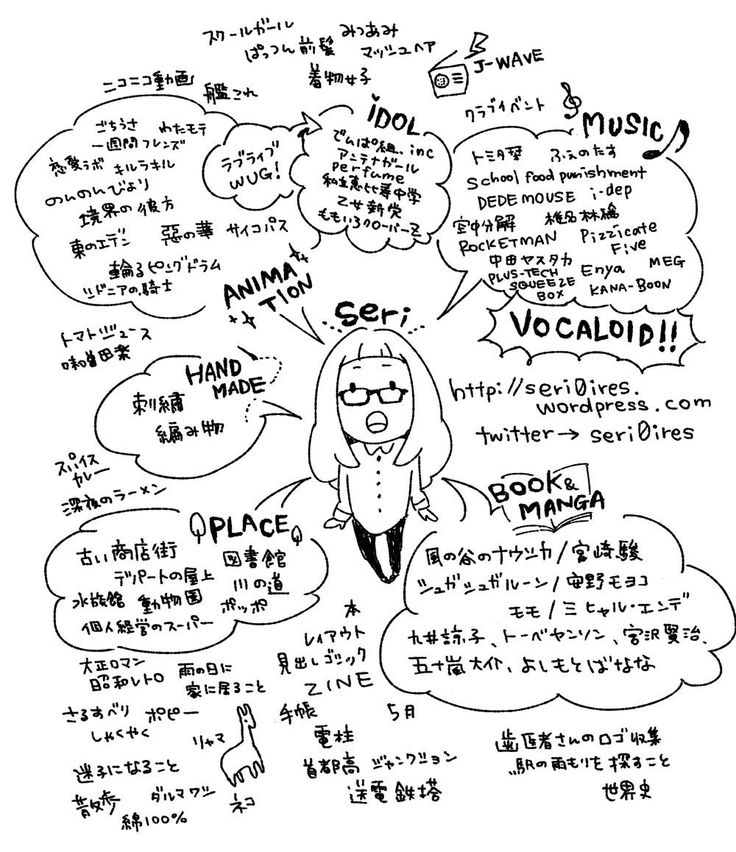 スクールガール
みつあみ
ぱっつん前髪
マッシュヘア
着物女子
J-WAVE
ニコニコ動画
艦これ
クラブイベント
ごちうさ わたモテ
一週間フレンズ
恋愛ラボ キルラキル
のんのんびより
境界の彼方
東のエデン 惡の華 サイコパス
輪るピングドラム
シドニアの騎士
ANIMA
TION
ラブライブ
WUG!
iDOL
でんぱ組.inc
アンテナガール
perfume
私立恵比寿中学
乙女新党
ももいろクローバーZ
MUSIC
トミタ栞 ふぇのたす
school food punishment
DEDE MOUSE i-dep
空中分解 椎名林檎
ROCKETMAN Pizzicate
Five
中田ヤスタカ
PLUS-TECH
SQUEEZE
BOX
Enya MEG
KANA-BOON
VOCALOID!!
seri
http://seri0ires.
wordpress.com
twitter→ seri0ires
トマトジュース
味噌田楽
HAND
MADE
刺繍
編み物
スパイス
カレー
深夜のラーメン
PLACE
古い商店街 図書館
デパートの屋上 川の道
水族館 動物園 ポッポ
個人経営のスーパー
BOOK&
MANGA
風の谷のナウシカ/宮崎駿
シュガシュガルーン/安野モヨコ
モモ/ミヒャル・エンデ
九井諒子、トーベヤンソン、宮沢賢治、
五十嵐大介、よしもとばなな
大正ロマン
昭和レトロ
雨の日に
家に居ること
さるすべり ポピー
しゃくやく
リャマ
迷子になること
散歩 ダルマワシ
綿100%
ネコ
本
レイアウト
見出しゴシック
ZINE
手帳 5月
電柱
首都高 ジャンクション
送電鉄塔
歯医者さんのロゴ収集
駅の雨もりを探すこと
世界史